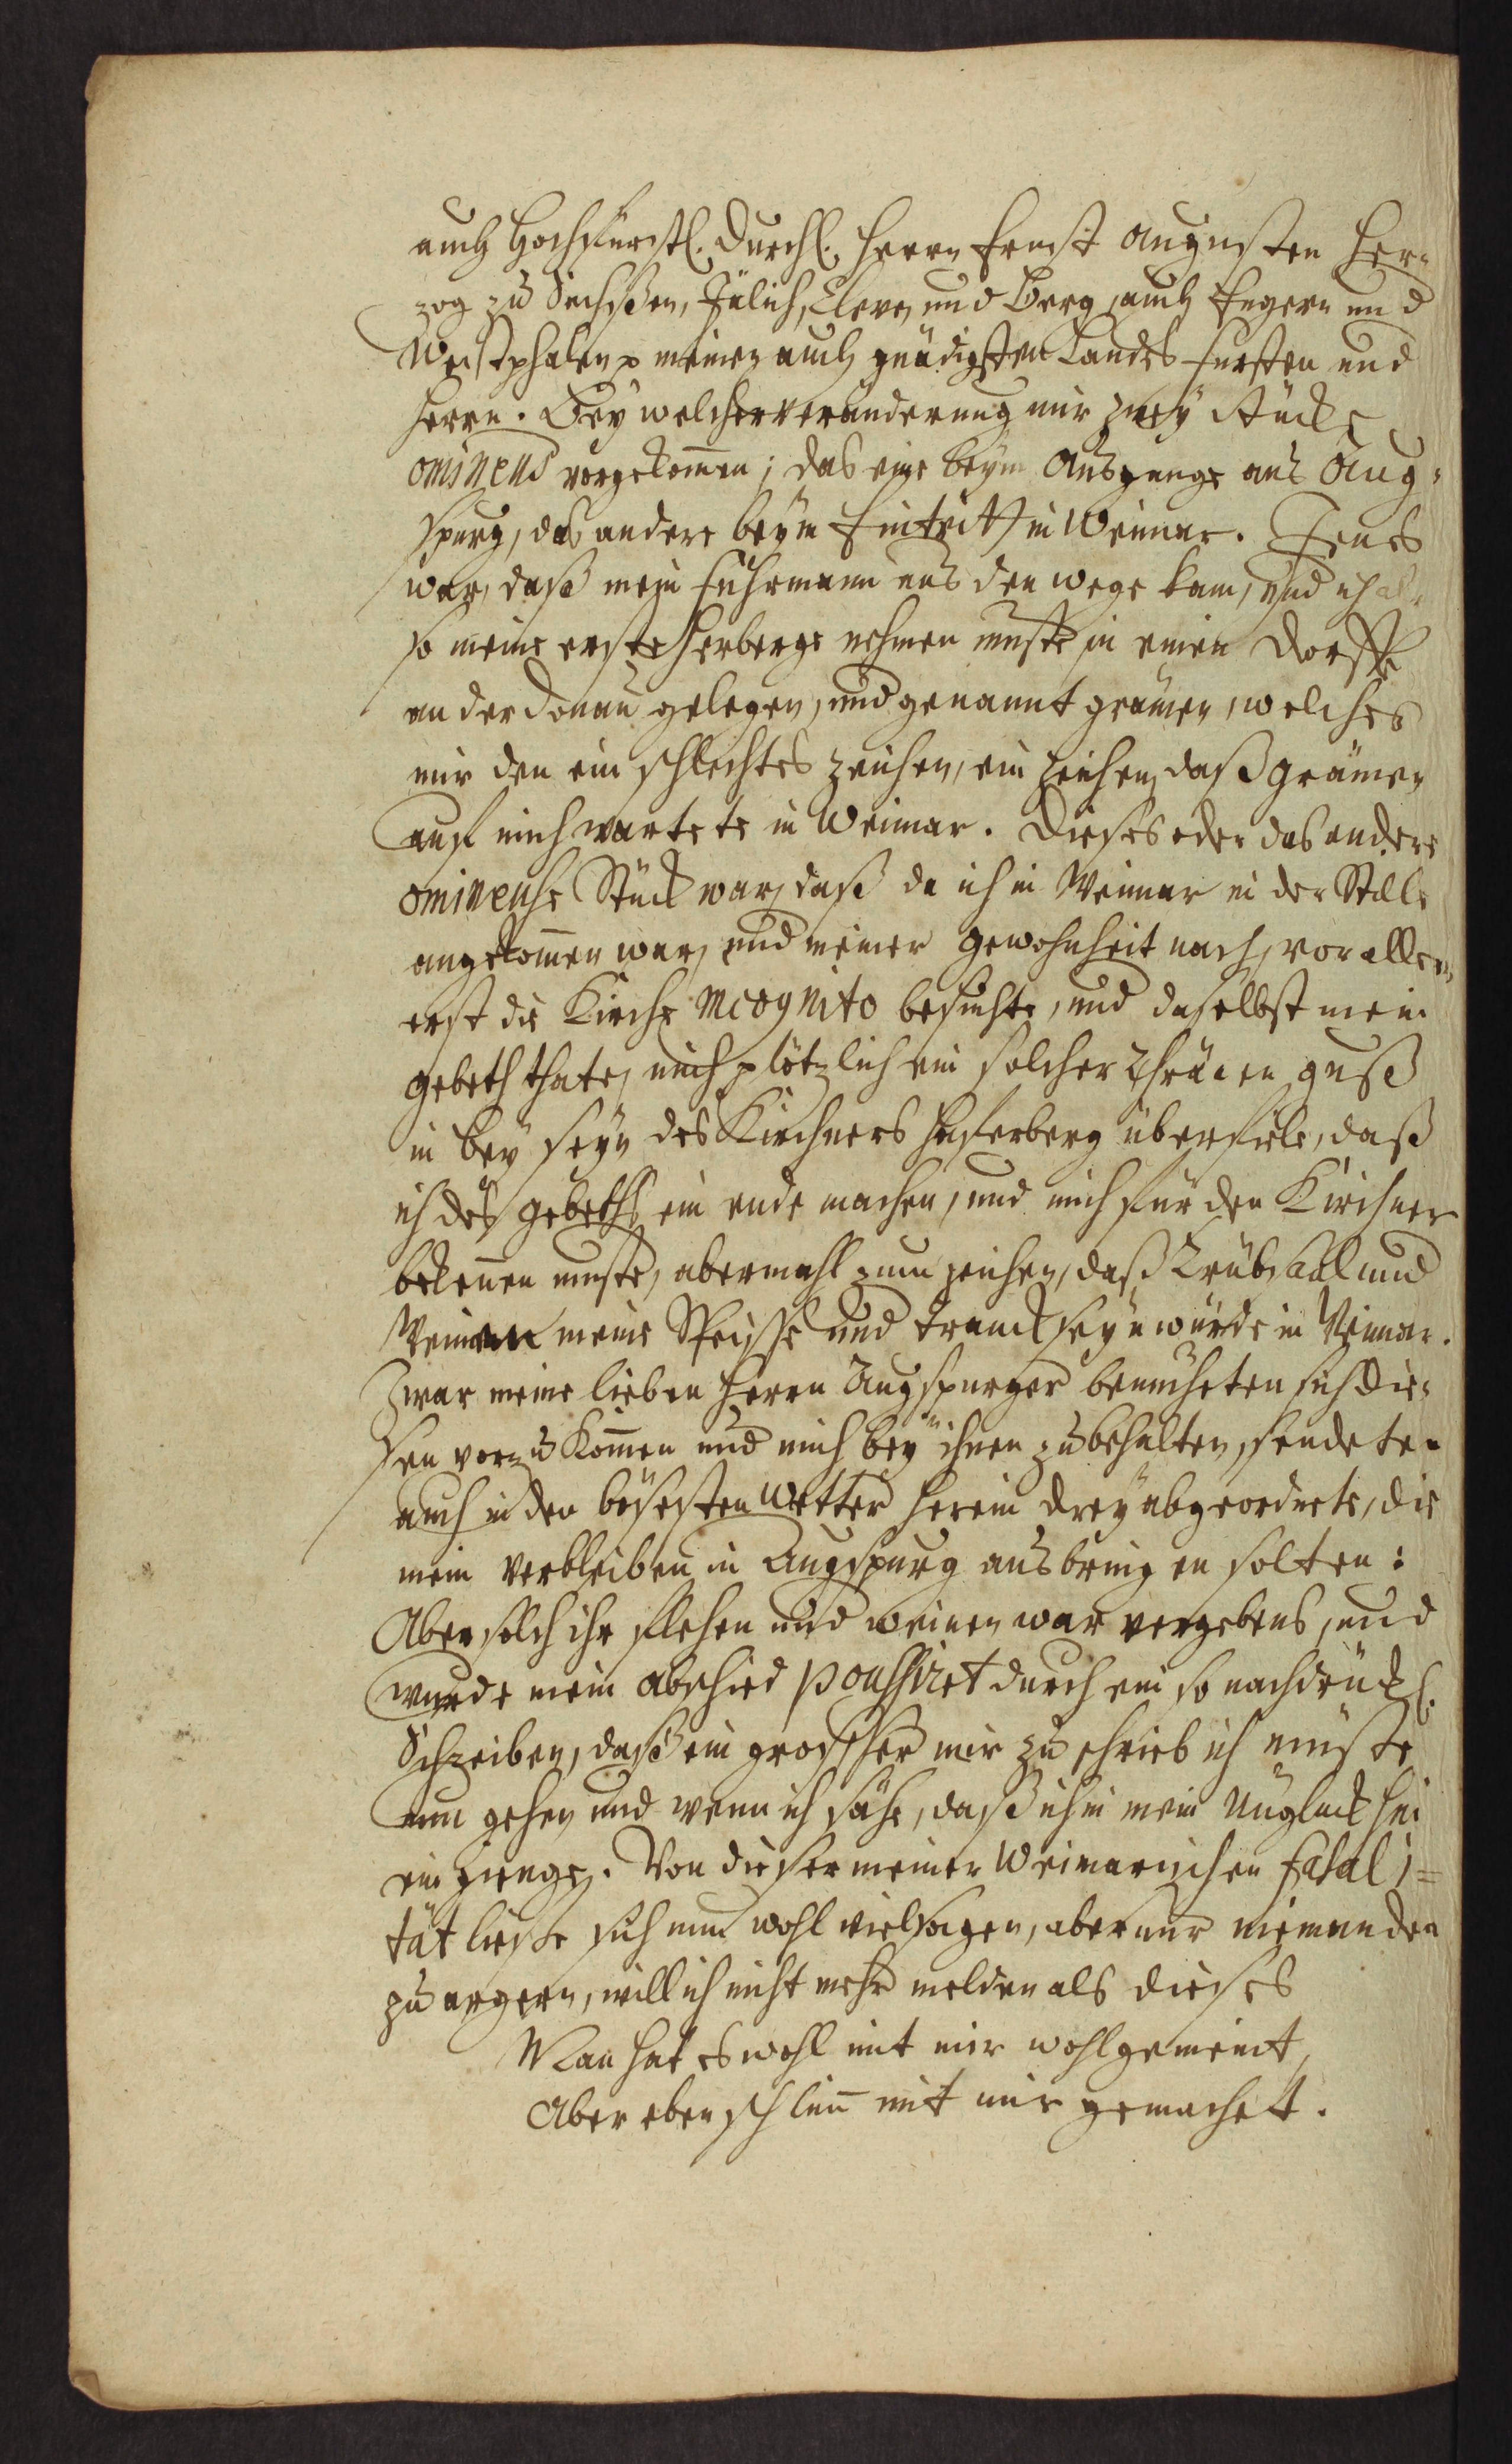 auch Hochfürstl. Durchl. Herrn Ernst Augusten Her-
zog zu Sachßen, Jülich, Cleve, und Berg, auch Engern und
Westphalen p meinen auch gnädigsten Landes Fursten und
Herrn. Bey welcher veränderung mir zwey stücke
omineus vorgekom̅en; das eine beym Ausgange aus Aug-
spurg, das andere beym Eintritt in Weimar. Jenes
war, daß mein Fuhrmann aus den wege kam, und ich al-
so meine erste Herberge nehmen muste in einen Dorffe
an der Donau gelegen, und genannt grämen, welches
mir den ein schlechtes zeichen, ein zeichen, daß grämen
auf mich wartete in Weimar. Dieses oder das andere
omineuse Stück war, daß da ich in Weimar in der Stille
angekom̅en war, und meiner gewohnheit nach, vor allen
erst die Kirche incognito besuchte, und daselbst mein
gebeth thate, mich plötzlich ein solcher Thränen guß
in bey seyn des Kirchners Haferberg überfiele, daß
ich des gebeths ein ende machen, und mich für den Kirchner
bekennen muste, abermahl zum zeichen, daß Trübsaal und
Weinen meine Speisse und Tranck seyn würde in Weimar.
Zwar meine lieben Herrn Augspurger bemüheten sich die-
sen vorzukom̅en und mich bey ihnen zubehalten, sendeten
auch in den bösesten Wetter herein drey abgeordnete, die
mein verbleiben in Augspurg ausbringen solten:
Aber solch ihr flehen und weinen war vergebens, und
wurde mein abschied poussiret durch ein so nachdrückl.
Schreiben, daß ein grosser mir zu schrieb ich müste
nun gehen und wenn ich sähe, daß ich in mein Unglück hin
ein gienge. Von dieser meiner Weimarischen fatali=
tät liesse sich nun wohl viel sagen, aber nur niemanden
zu argern, will ich nicht mehr melden als dieses
Man hat es wohl mit mir wohlgemeint,
Aber eben schlim̅ mit mir gemachet.